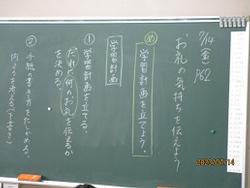 7/14 金 P62
お礼の気持ちを伝えよう
め 学習計画を立てよう。
学習計画
① 学習計画を立てる。
だれに何のお礼を伝えるか
を決める。
② 手紙の書き方をたしかめる。
内ようを考える(下書き)